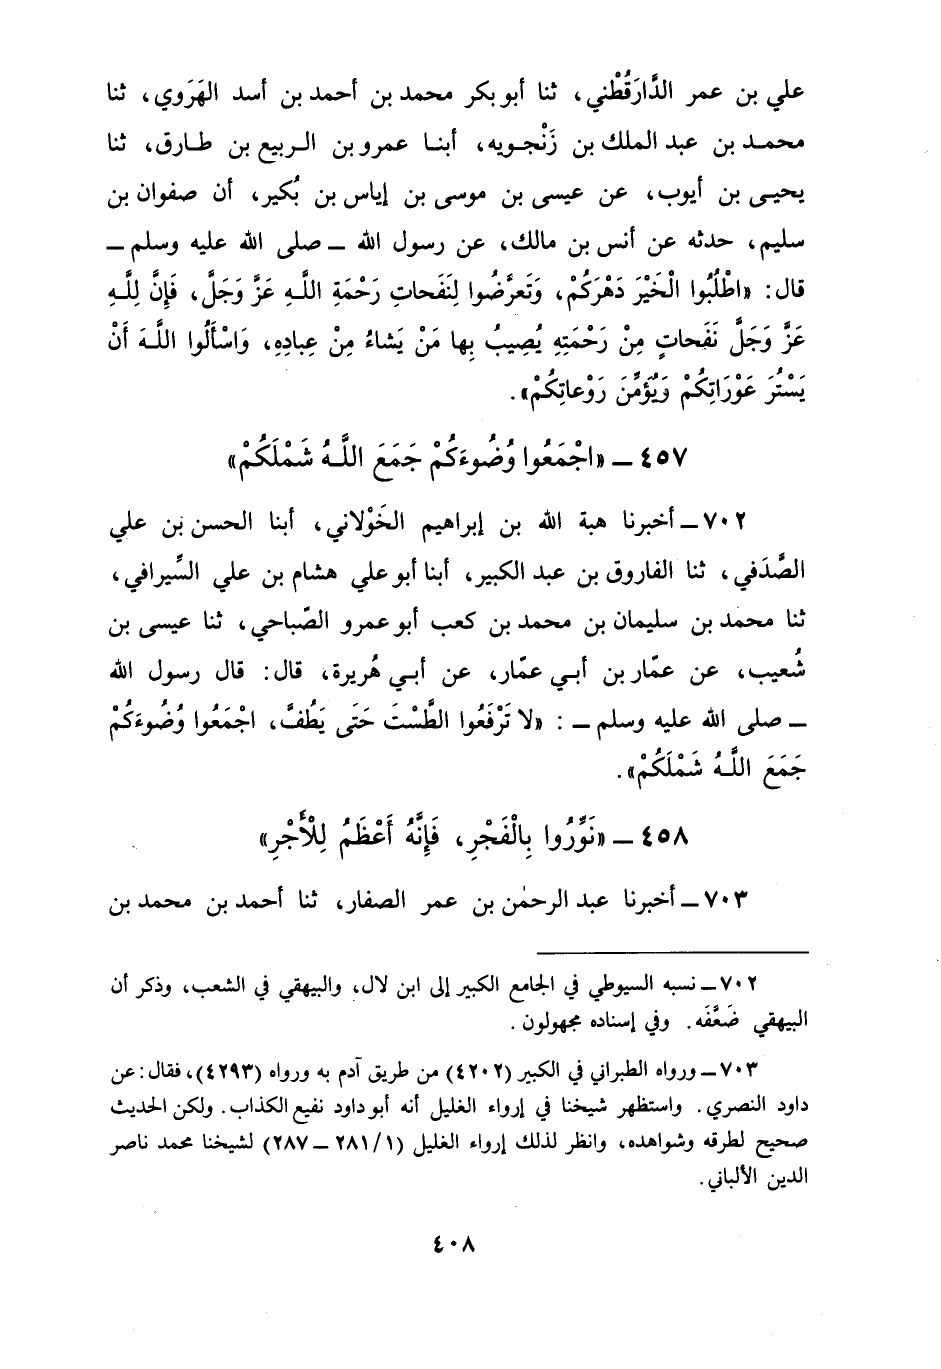 علي بن عمر الدَّارَقُطْني، ثنا أبو بكر محمد بن أحمد بن أسد الهَرَوي، ثنا
محمد بن عبد الملك بن زَنْجويه، أبنا عمرو بن الربيع بن طارق، ثنا
يحيى بن أيوب، عن عيسى بن موسى بن إياس بن بُكير، أن صفوان بن
سليم، حدثه عن أنس بن مالك، عن رسول الله ــ صلى الله عليه وسلم ــ
قال: «اطْلُبُوا الْخَيْرَ دَهْرَكُمْ، وَتَعرَّضُوا لِنَفَحاتِ رَحْمَةِ اللَّهِ عَزَّ وَجَلَّ، فَإِنَّ لِلَّهِ
عَزَّ وَجَلَّ نَفَحاتٍ مِنْ رَحْمَتِهِ يُصِيبُ بِها مَنْ يَشاءُ مِنْ عِبادِهِ، وَاسْأَلُوا اللَّهَ أَنْ
يَسْتُرَ عَوْرَاتِكُمْ وَيُؤَمِّنَ رَوْعاتِكُمْ».
٤٥٧ ــ «اجْمَعُوا وُضُوءَكُمْ جَمَعَ اللَّهُ شَمْلَكُمْ»
٧٠٢ ــ أخبرنا هبة الله بن إبراهيم الخَوْلاني، أبنا الحسن بن علي
الصَّدَفي، ثنا الفاروق بن عبد الكبير، أبنا أبو علي هشام بن علي السِّيرافي،
ثنا محمد بن سليمان بن محمد بن كعب أبو عمرو الصّباحي، ثنا عيسى بن
شُعيب، عن عمّار بن أبي عمّار، عن أبي هُريرة، قال: قال رسول الله
ــ صلى الله عليه وسلم ــ : «لا تَرْفَعُوا الطَّسْتَ حَتَى يَطُفَّ، اجْمَعُوا وُضُوءَكُمْ
جَمَعَ اللَّهُ شَمْلَكُمْ».
٤٥٨ ــ «نَوِّرُوا بِالْفَجْرِ، فَإِنَّهُ أَعْظَمُ لِلْأَجْرِ»
٧٠٣ ــ أخبرنا عبد الرحمٰن بن عمر الصفار، ثنا أحمد بن محمد بن
٧٠٢ ــ نسبه السيوطي في الجامع الكبير إلى ابن لال، والبيهقي في الشعب، وذكر أن
البيهقي ضَعَّفَه. وفي إسناده مجهولون.
٧٠٣ ــ ورواه الطبراني في الكبير (٤٢٠٢) من طريق آدم به ورواه (٤٢٩٣)، فقال: عن
داود النصري. واستظهر شيخنا في إرواء الغليل أنه أبو داود نفيع الكذاب. ولكن الحديث
صحيح لطرقه وشواهده، وانظر لذلك إرواء الغليل (٢٨١/١ ــ ٢٨٧) لشيخنا محمد ناصر
الدين الألباني.
٤٠٨